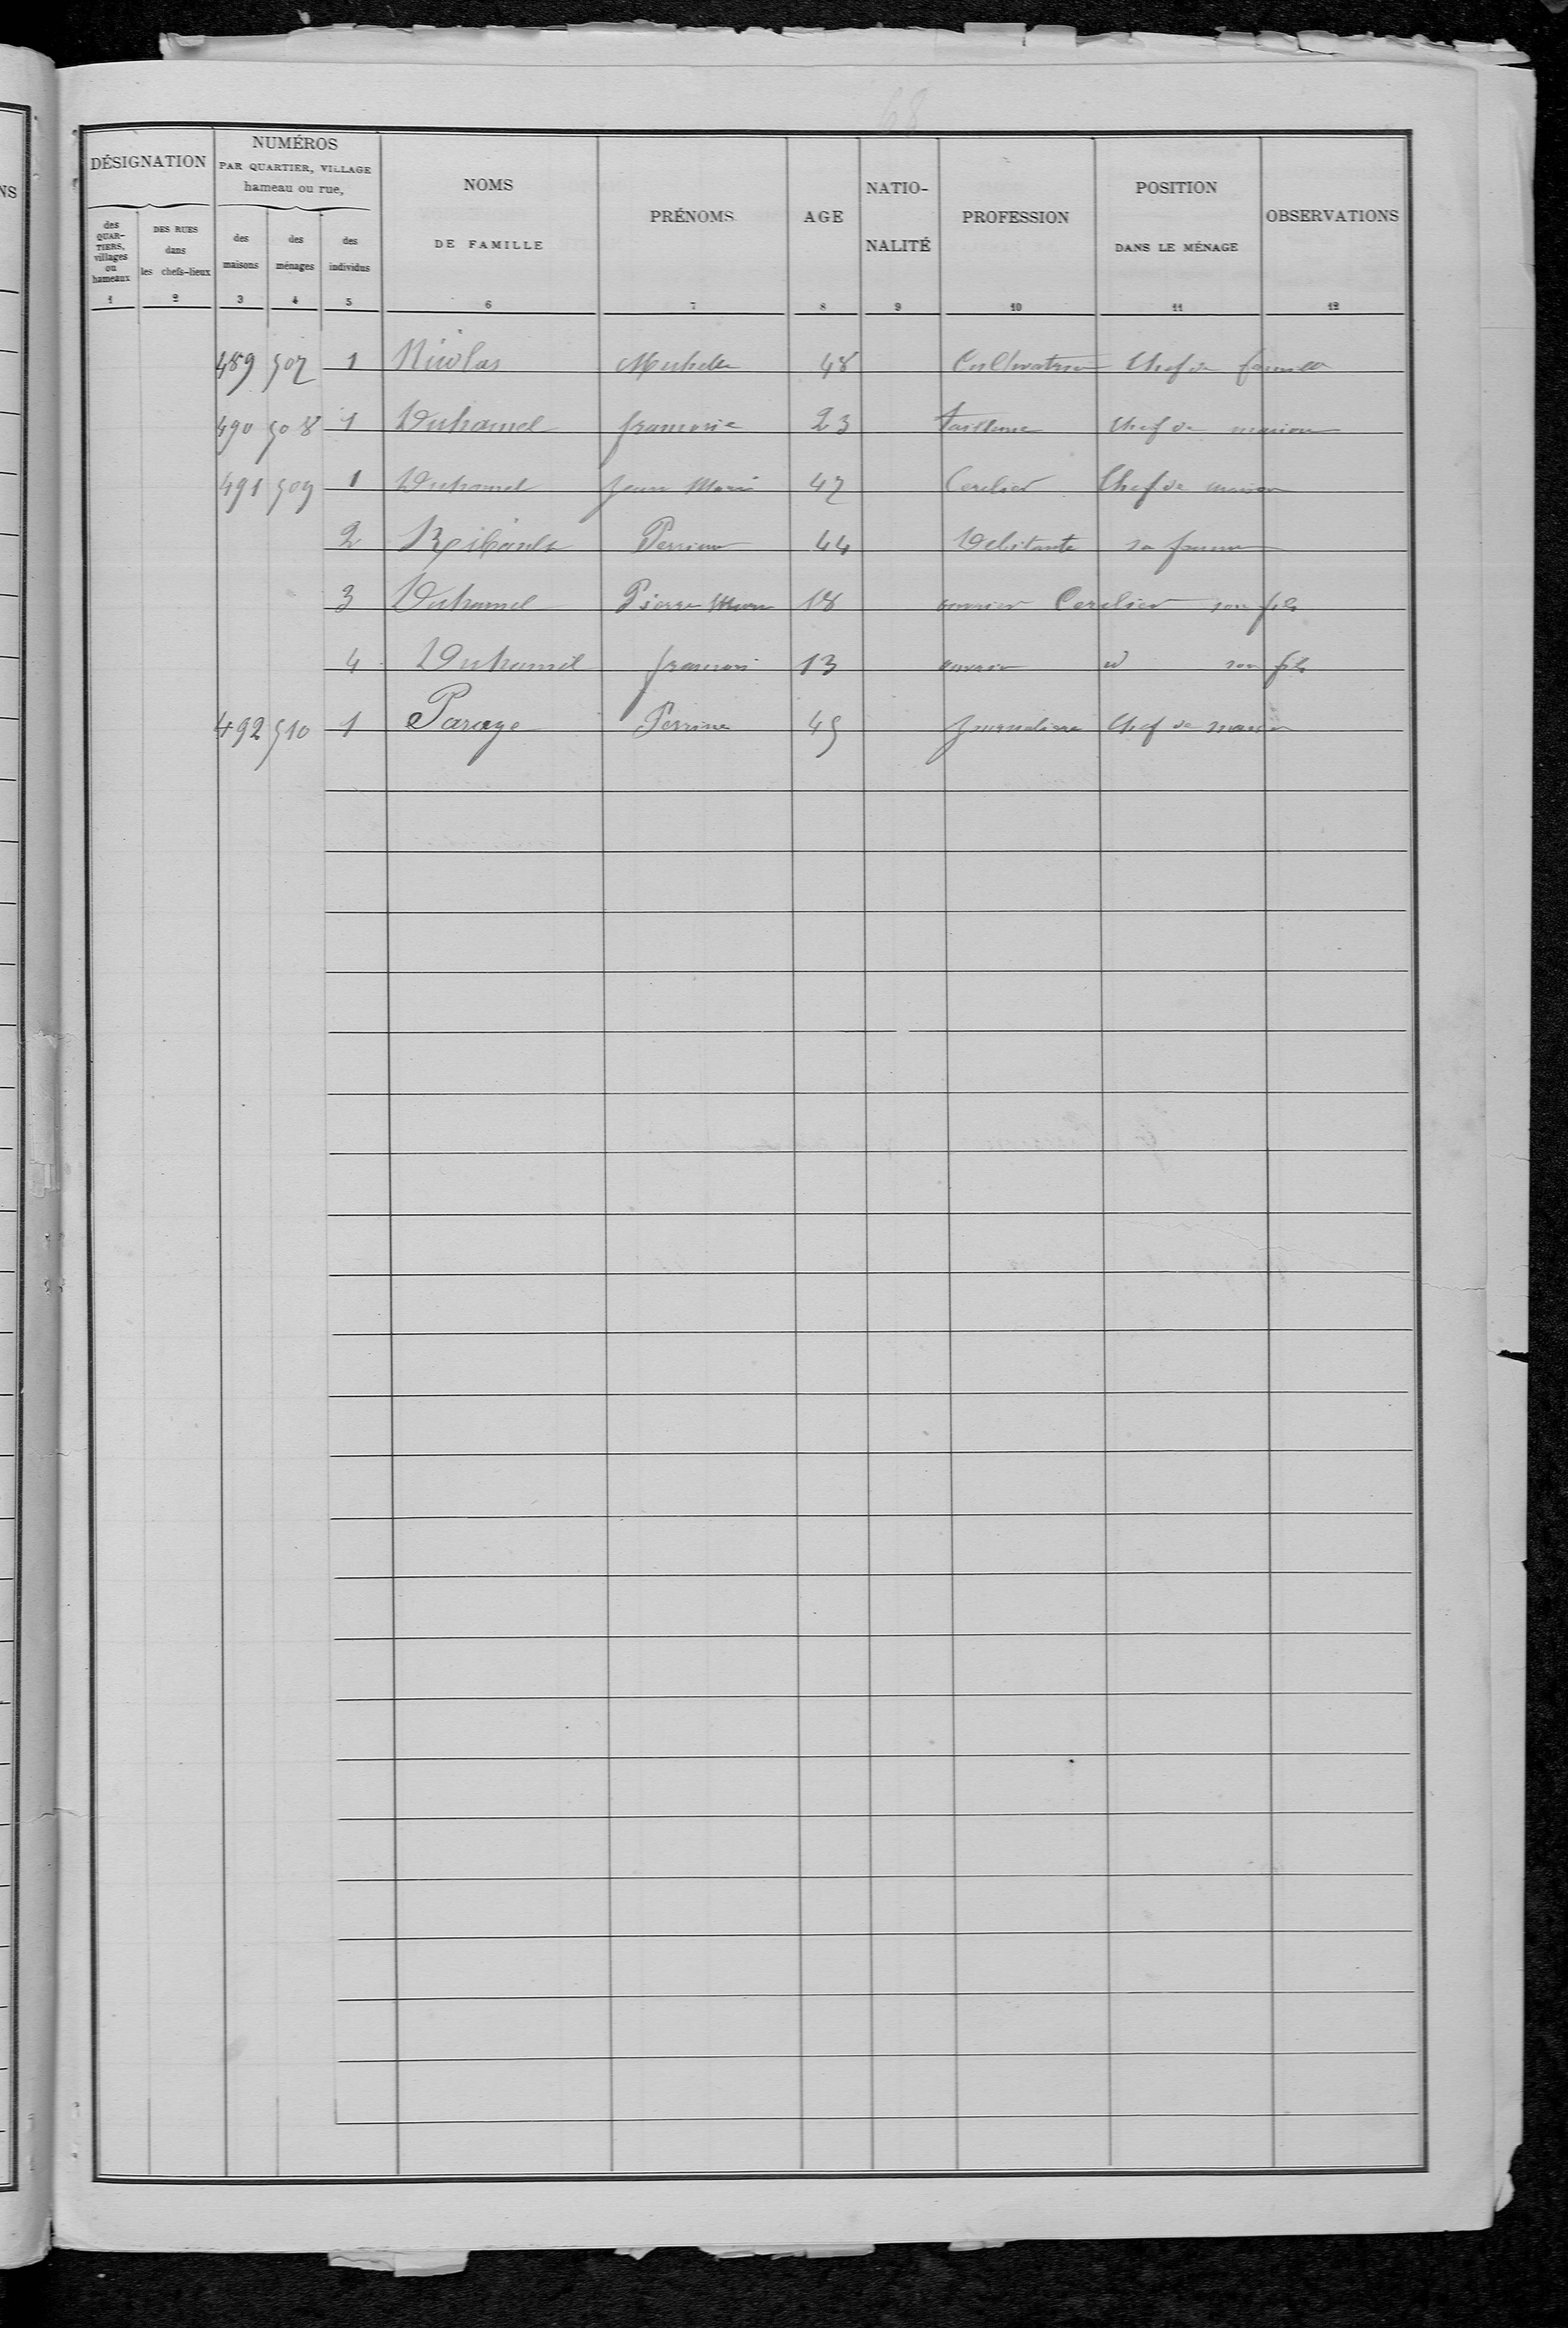 68
DÉSIGNATION NUMÉROS PAR QUARTIER, VILLAGE hameau ou rue, NOMS DE FAMILLE PRÉNOMS AGE NATIO-NALITÉ PROFESSION POSITION DANS LE MÉNAGE OBSERVATIONS
des QUAR-TIERS, villages ou hameaux DES RUES dans les chefs-lieux des maisons des ménages des individus
1 2 3 4 5 6 7 8 9 10 11 12
489 507 1 Nicolas Michelle 48 Cultivatrice Chef de famille
490 508 1 Duhamel francoise 23 tailleuse chef de maison
491 509 1 Duhamel Jean Marie 47 Cerclier Chef de maison
2 Ribault Perrine 44 Débitante sa femme
3 Duhamel Pierre Marie 18 ouvrier Cerclier son fils
4 Duhamel francois 13 ouvrier id son fils
492 510 1 Parage Perrine 45 Journaliere Chef de maison
NS